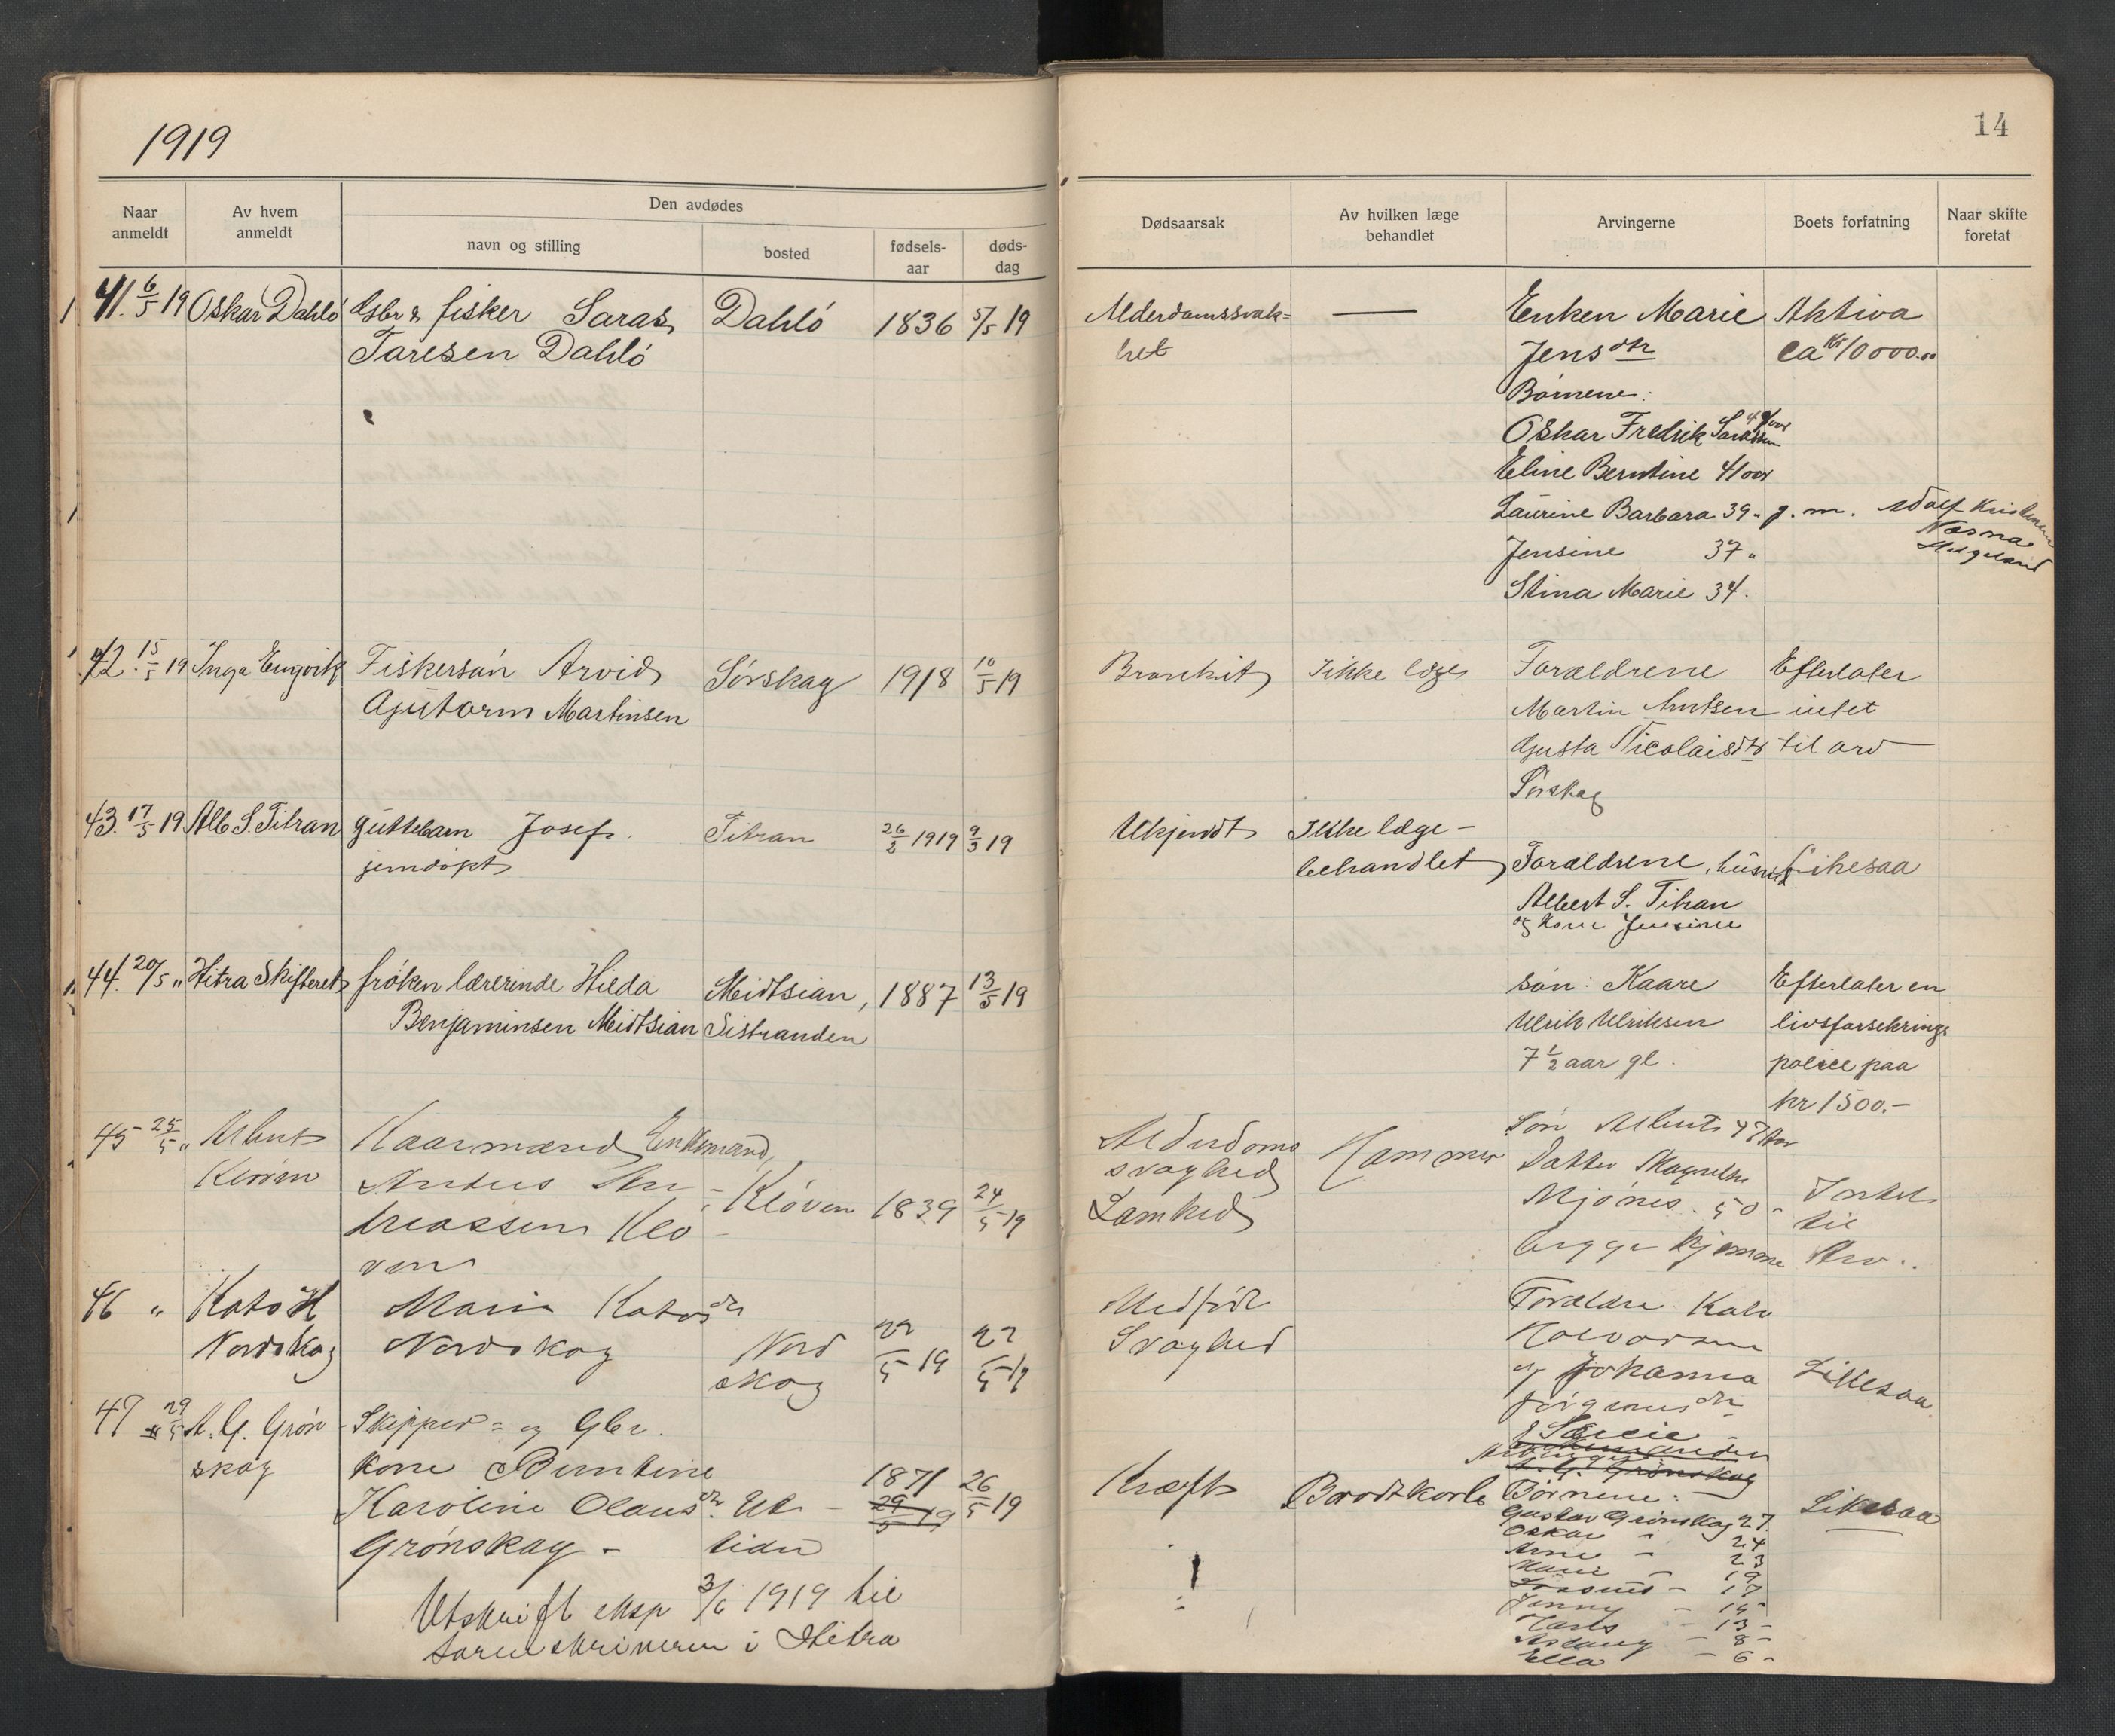 1919
14
Naar anmeldt
Av hvem anmeldt
Den avdødes
navn og stilling
bosted
fødsels-aar
døds-dag
Dødsaarsak
Av hvilken læge behandlet
Arvingerne
Boets forfatning
Naar skifte foretat
41. 6/5 19 Oskar Dahlö Gbr & fisker Saras Dahlö 1836 5/5 19
Taresen Dahlö
Alderdomssvak=
het
Enken Marie
Jensdtr
Börnene:
Oskar Fredrik
Eline Berntine 41 aar
Laurine Barbara 39 " g. m. Adolf Kristensen
Næsna
Helgeland
Jensine 37 "
Stina Marie 34.
Aktiva
ca kr 10000.00
42. 15/5 19 Inga Engvik Fiskersön Arvid Sörskag 1918 10/5 19
Martinsen
Bronkit Ikke læge
Forældrene
Martin
Gusta Nicolaisdtr
Sörskag
Efterlater
intet
til arv
43. 17/5 19 Alb S. Titran guttebarn Josef. Titran 26/2 1919 9/3 19
jemdöpt
Ukjendt Ikke læge-
behandlet
Forældrene,
Albert S. Titran
og Kone Jensine
Likesaa
44. 20/5 " Hitra Skifteret fröken lærerinde Hilda Meidtsian, 1887 13/5 19
Benjaminsen Meidtsian Sistranden
sön: Kaare
Ulrik Ulriksen
7 1/2 aar gl.
Efterlater en
livsforsekrings
police paa
kr 1500.-
45 25/5 " Kaarmand Enkemand,
Klöven 1839 24/5 19
Klö
ven
Alderdoms
svaghed
Lamhed
Hammer
Sön Albert 47 Aar
Datter
Mjönes. 50 -
begge Hjemme
Intet
til
Arv..
46 " Kato H Maria Katosdtr
Nordskag Nordskag Nord
skag
22/5 19 22/5 19
Medfödt
Svaghed
Forældre Kato
Halvorsen
og Johanna
Jörgensdtr
Likesaa
47 29/5 A. G. Grön- Skipper= og Gbr.
skag kone Berntine 1871 26/5 19
Karoline Olausdtr. Ut-
Grönskag - tian
29/5 19
Kræft Brodtkorb
A. G. Grönskag
Börnene:
Gustav Grönskag 27.
Oskar - 24
Arne - 23
Marie - 19
- 17
Jenny - 15
- 13 -
Aslaug - 8 -
Ella - 6 -
Likesaa
Utskrift eksp 3/6 1919 til
sorenskriveren i Hitra